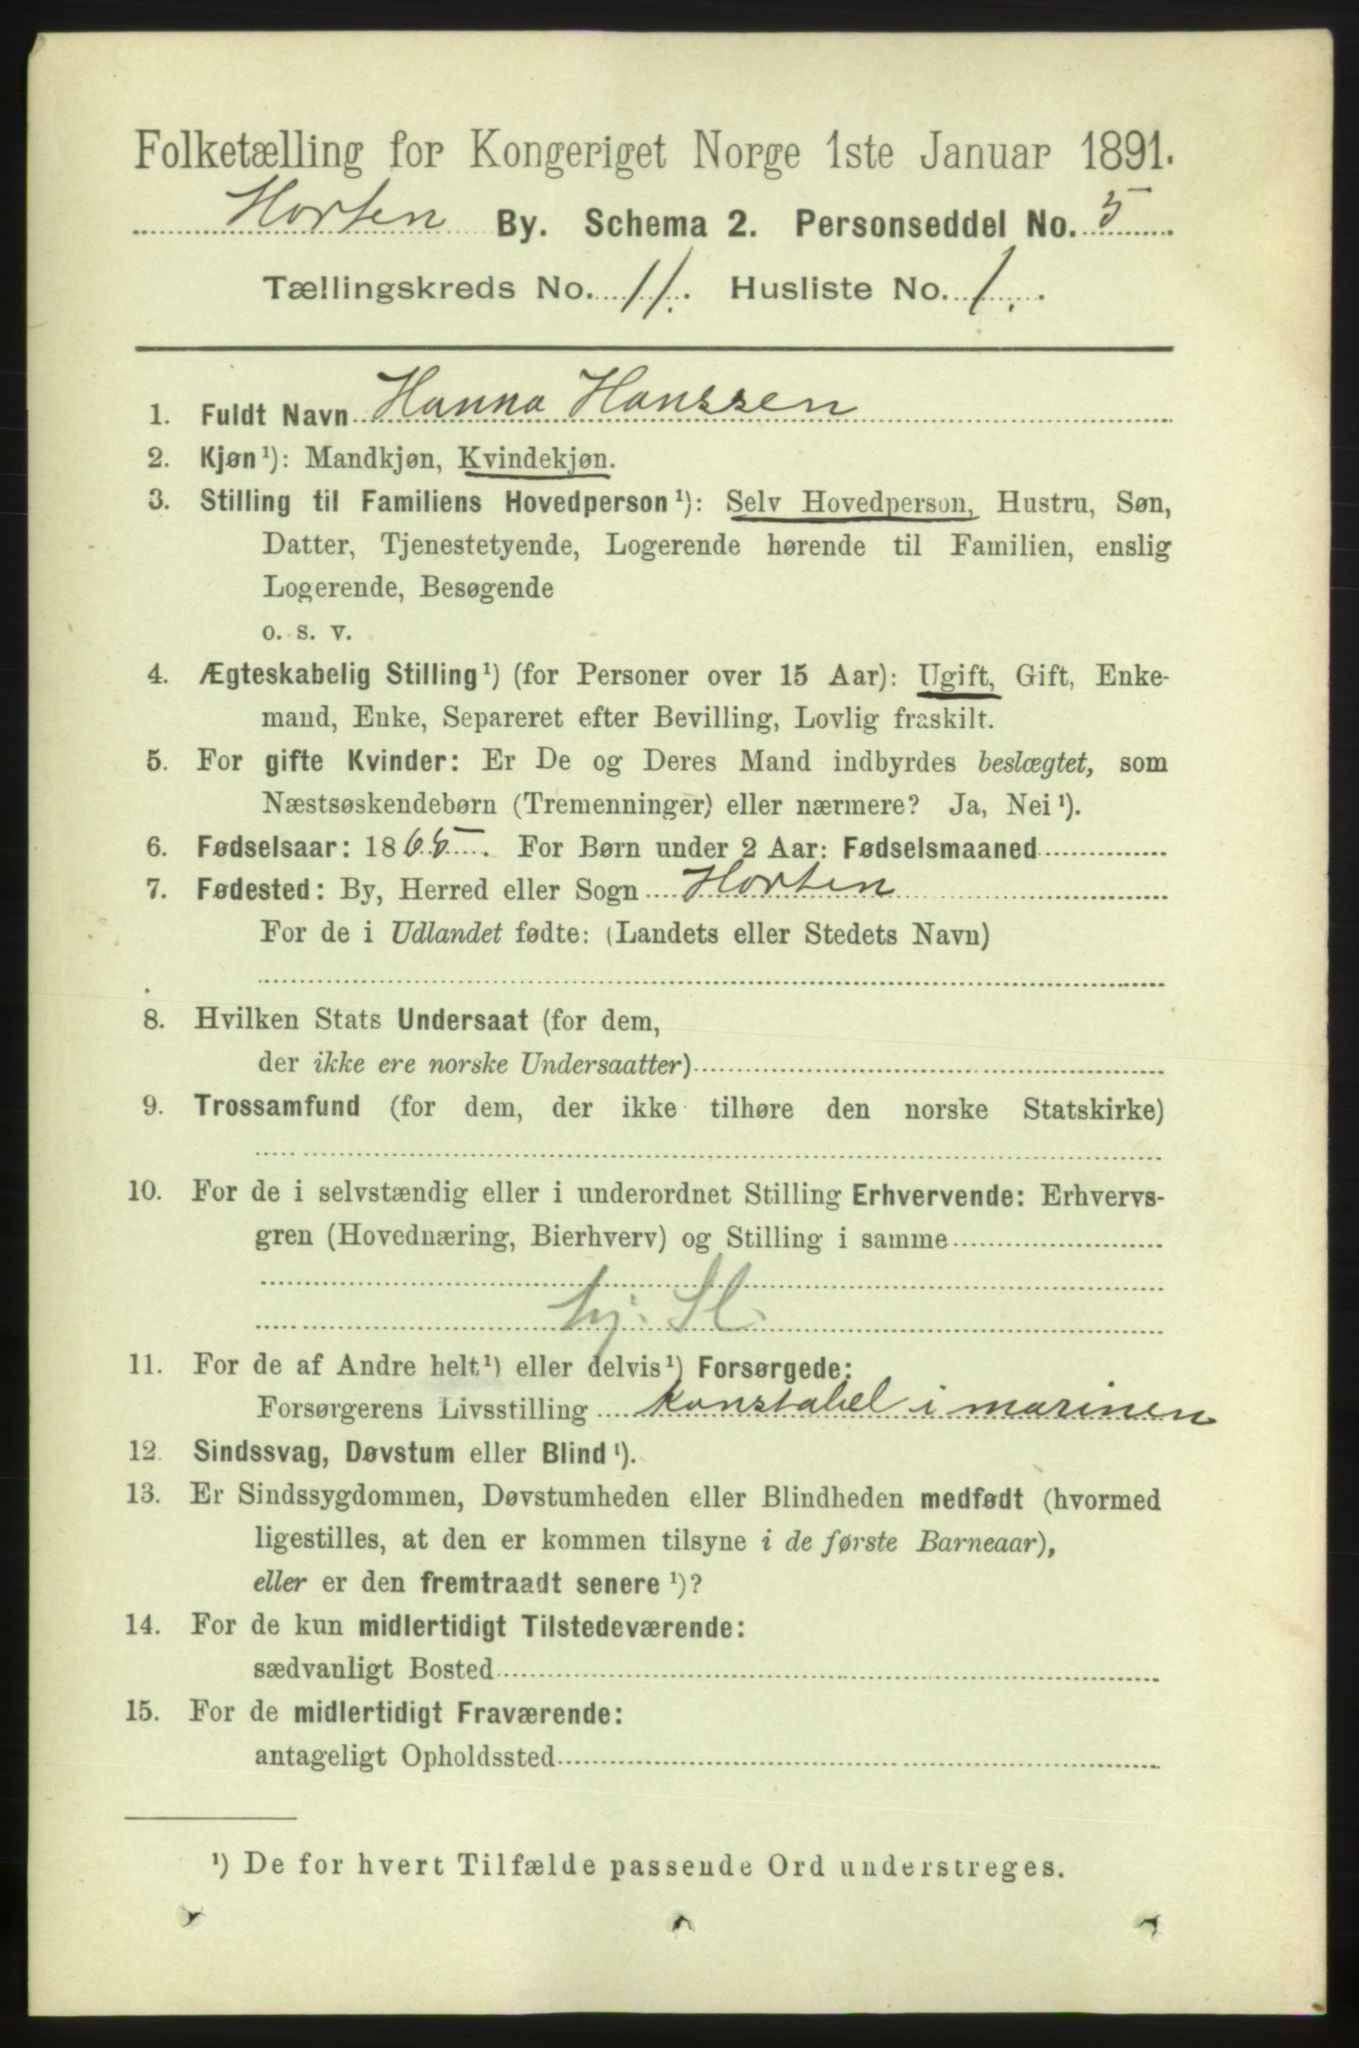 Folketælling for Kongeriget Norge 1ste Januar 1891.
Horten By. Schema 2. Personseddel No. 5
Tællingskreds No. 11. Husliste No. 1.
1. Fuldt Navn Hanna Hanssen
2. Kjøn¹): Mandkjøn, Kvindekjøn.
3. Stilling til Familiens Hovedperson¹): Selv Hovedperson, Hustru, Søn,
Datter, Tjenestetyende, Logerende hørende til Familien, enslig
Logerende, Besøgende
o. s. v.
4. Ægteskabelig Stilling¹) (for Personer over 15 Aar): Ugift, Gift, Enke-
mand, Enke, Separeret efter Bevilling, Lovlig fraskilt.
5. For gifte Kvinder: Er De og Deres Mand indbyrdes beslægtet, som
Næstsøskendebørn (Tremenninger) eller nærmere? Ja, Nei¹).
6. Fødselsaar: 1865. For Børn under 2 Aar: Fødselsmaaned
7. Fødested: By, Herred eller Sogn Horten
For de i Udlandet fødte: (Landets eller Stedets Navn)
8. Hvilken Stats Undersaat (for dem,
der ikke ere norske Undersaatter)
9. Trossamfund (for dem, der ikke tilhøre den norske Statskirke)
10. For de i selvstændig eller i underordnet Stilling Erhvervende: Erhvervs-
gren (Hovednæring, Bierhverv) og Stilling i samme
11. For de af Andre helt¹) eller delvis¹) Forsørgede:
Forsørgerens Livsstilling Konstabel i marinen
12. Sindssvag, Døvstum eller Blind¹).
13. Er Sindssygdommen, Døvstumheden eller Blindheden medfødt (hvormed
ligestilles, at den er kommen tilsyne i de første Barneaar),
eller er den fremtraadt senere¹)?
14. For de kun midlertidigt Tilstedeværende:
sædvanligt Bosted
15. For de midlertidigt Fraværende:
antageligt Opholdssted
¹) De for hvert Tilfælde passende Ord understreges.